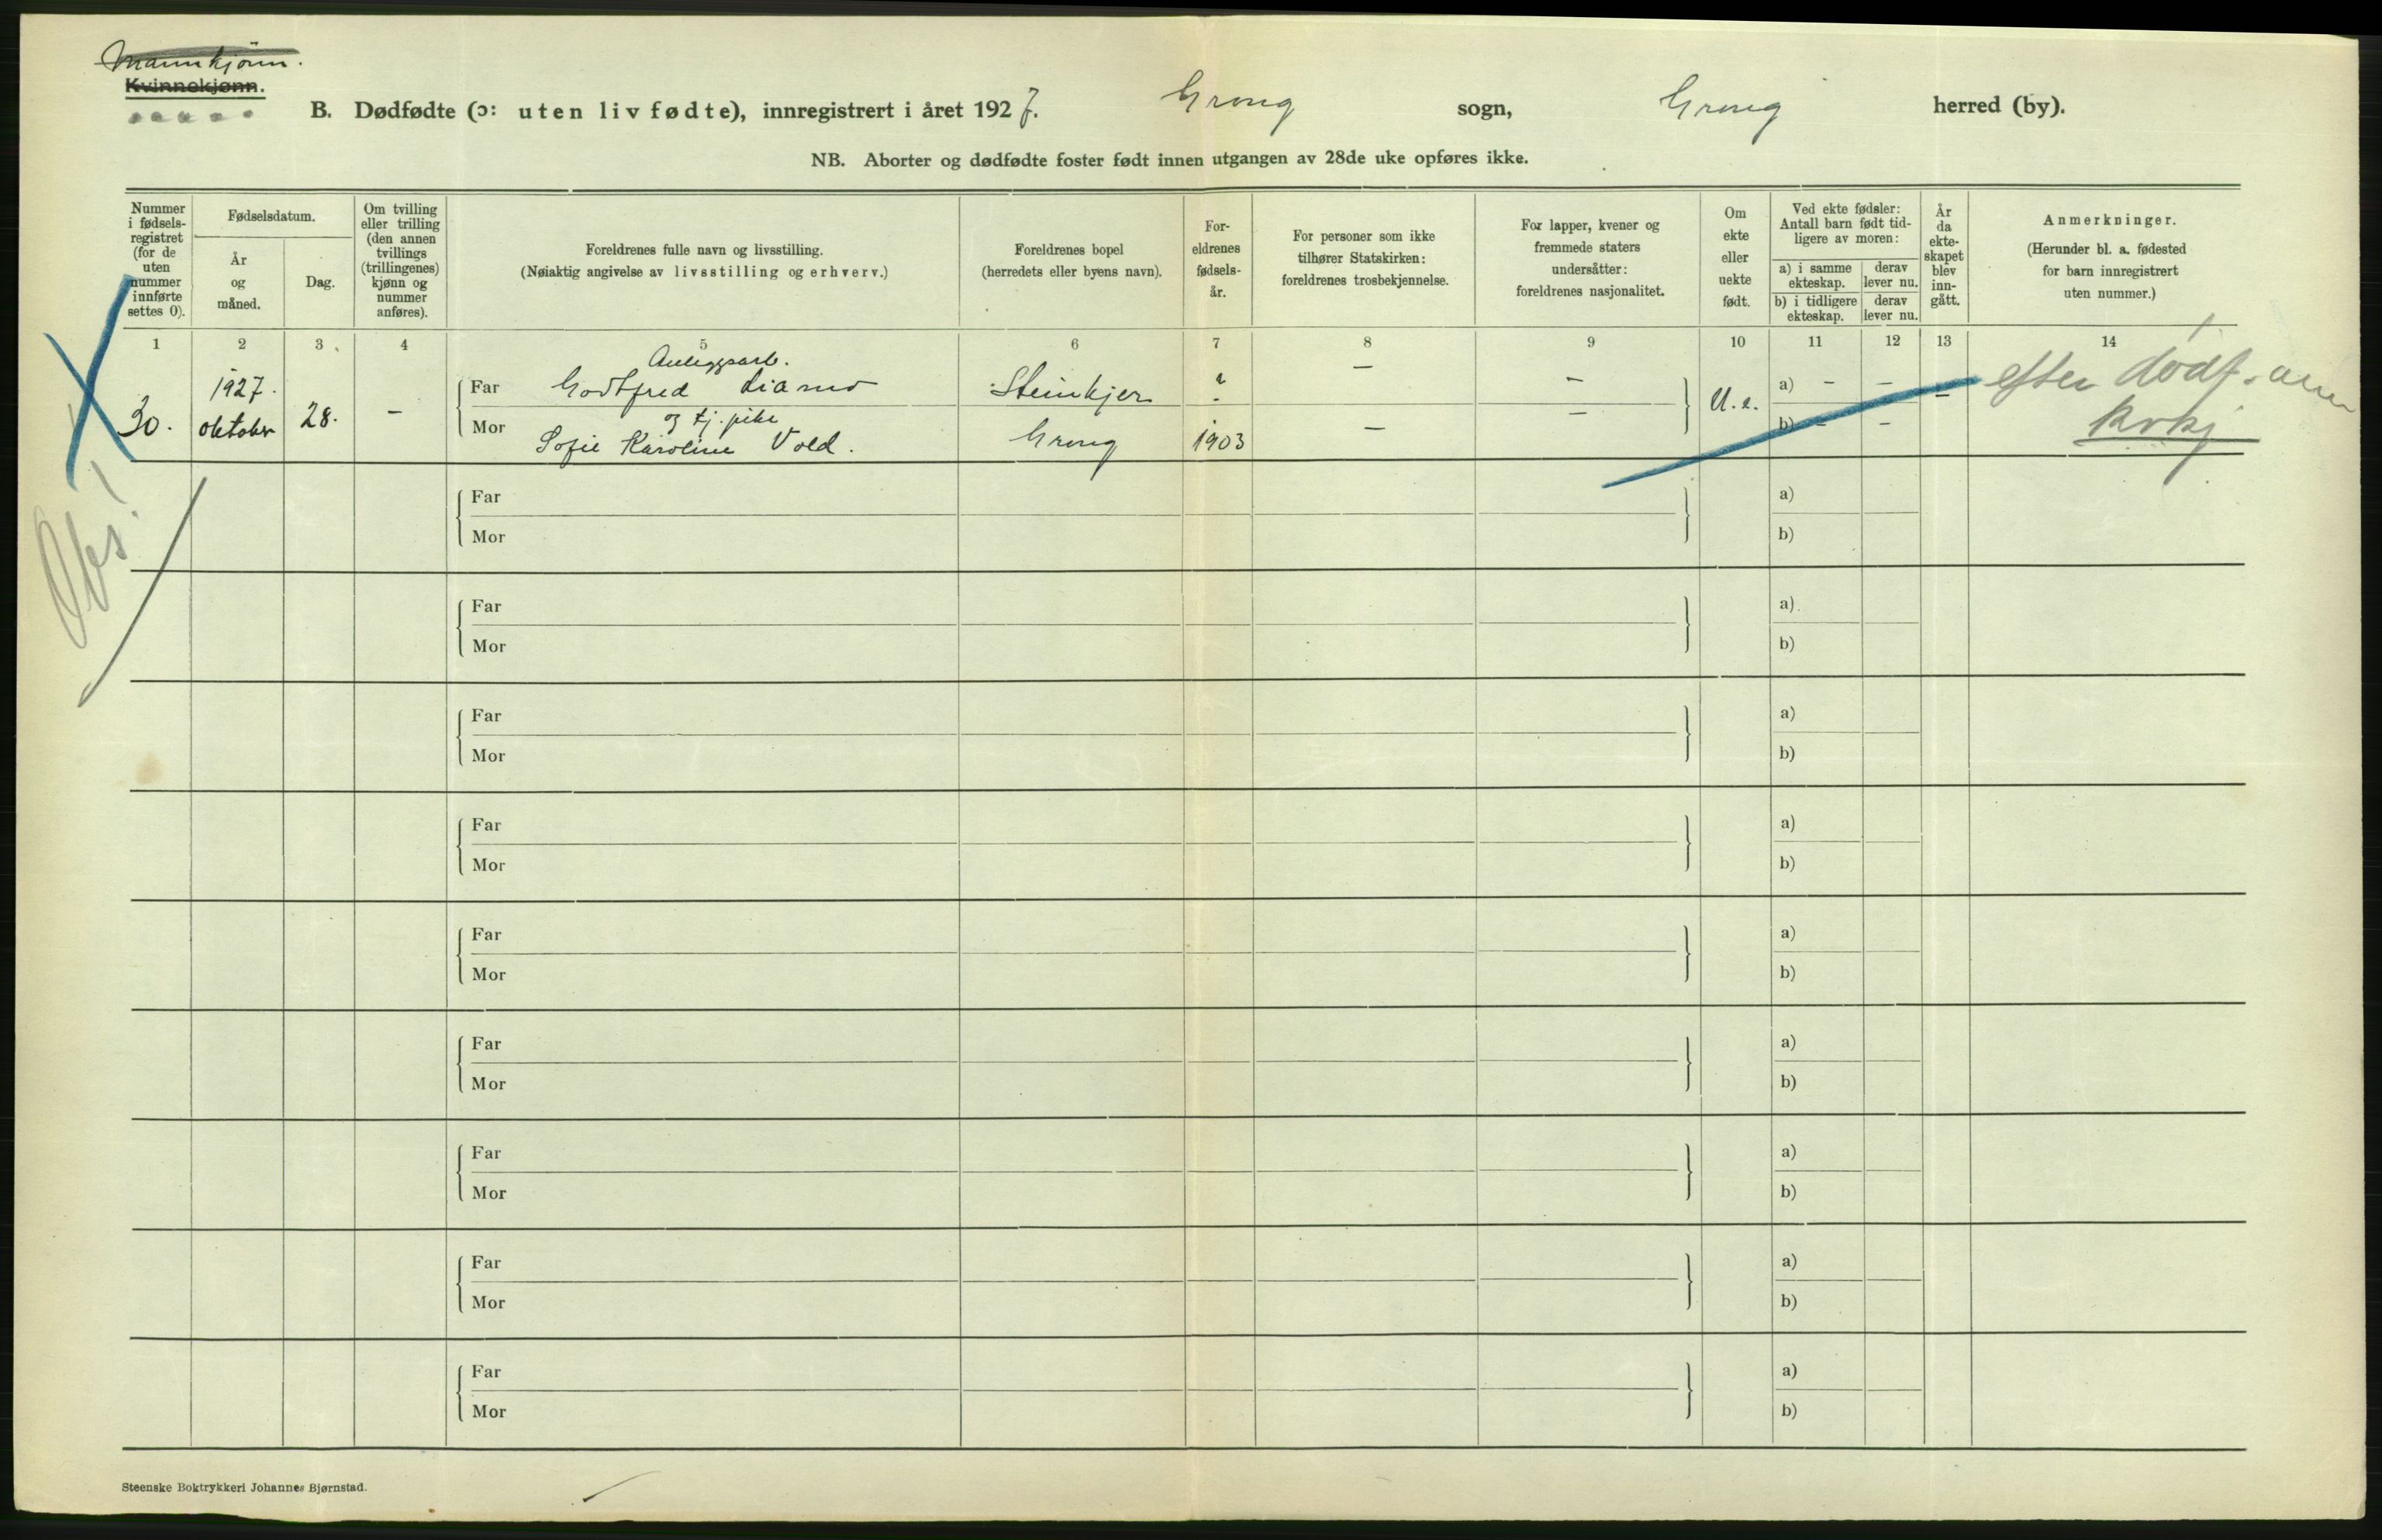 Mannkjønn.
Kvinnekjønn.
B. Dødfødte (ɔ: uten liv fødte), innregistrert i året 1927. Grong sogn, Grong herred (by).
NB. Aborter og dødfødte foster født innen utgangen av 28de uke opføres ikke.
Nummer i fødselsregistret (for de uten nummer innførte settes 0).
Fødselsdatum.
År og måned.
Dag.
Om tvilling eller trilling (den annen tvillings (trillingenes) kjønn og nummer anføres).
Foreldrenes fulle navn og livsstilling.
(Nøiaktig angivelse av livsstilling og erhverv.)
Foreldrenes bopel
(herredets eller byens navn).
Foreldrenes fødselsår.
For personer som ikke tilhører Statskirken: foreldrenes trosbekjennelse.
For lapper, kvener og fremmede staters undersåtter: foreldrenes nasjonalitet.
Om ekte eller uekte født.
Ved ekte fødsler: Antall barn født tidligere av moren:
a) i samme ekteskap.
derav lever nu.
b) i tidligere ekteskap.
derav lever nu.
År da ekteskapet blev inngått.
Anmerkninger.
(Herunder bl. a. fødested for barn innregistrert uten nummer.)
1 2 3 4 5 6 7 8 9 10 11 12 13 14
Anleggsarb.
1927. Far Godtfred Liamo Steinkjer ? — — U.e. a) — — — efter dødf.
30. oktober 28. — og tj.pike
Mor Sofie Karoline Vold. Grong 1903 — — b) — — kvkj
Obs!
Far a)
Mor b)
Far a)
Mor b)
Far a)
Mor b)
Far a)
Mor b)
Far a)
Mor b)
Far a)
Mor b)
Far a)
Mor b)
Far a)
Mor b)
Far a)
Mor b)
Steenske Boktrykkeri Johannes Bjørnstad.